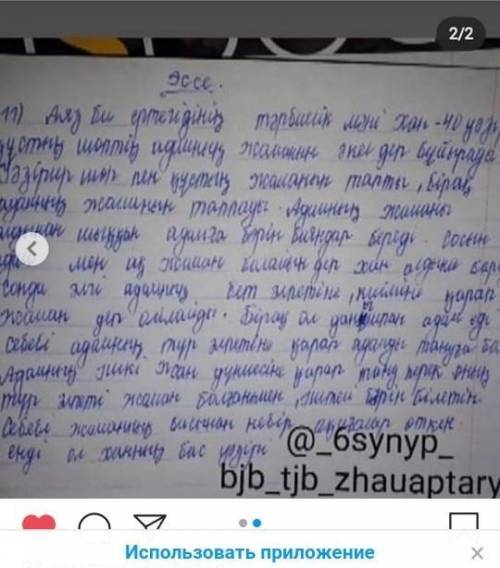 2/2
Эссе.
11) Аяз би ертегідінің тәрбиелік мәні хан - 40 уәзі
құстың шөптің адамның жаманын әкел деп бұйырады
уәзірлер шөп пен құстың жаманын тапты, бірақ
адамның жаманын таппады. Адамның жаманы
шыққан адамға бәрін баяндап береді. Сосын
мен ақ жаман болайын деп хан алдына бар
Сонда әлгі адамның бет әлпетіне, киіміне қарап
жаман деп ойлайды. Бірақ ол адам еді
себебі адамның түр әлпетіне қарап адамды тануға бо
Адамның ішкі жан дүниесіне қарап тану керек оның
түр әлпеті жаман болғанымен, бәрін білетін
себебі жаманның басынан небір оқиғалар өткен
енді ол ханның бас уәзірі
@_6synyp_
bjb_tjb_zhauaptary
Использовать приложение